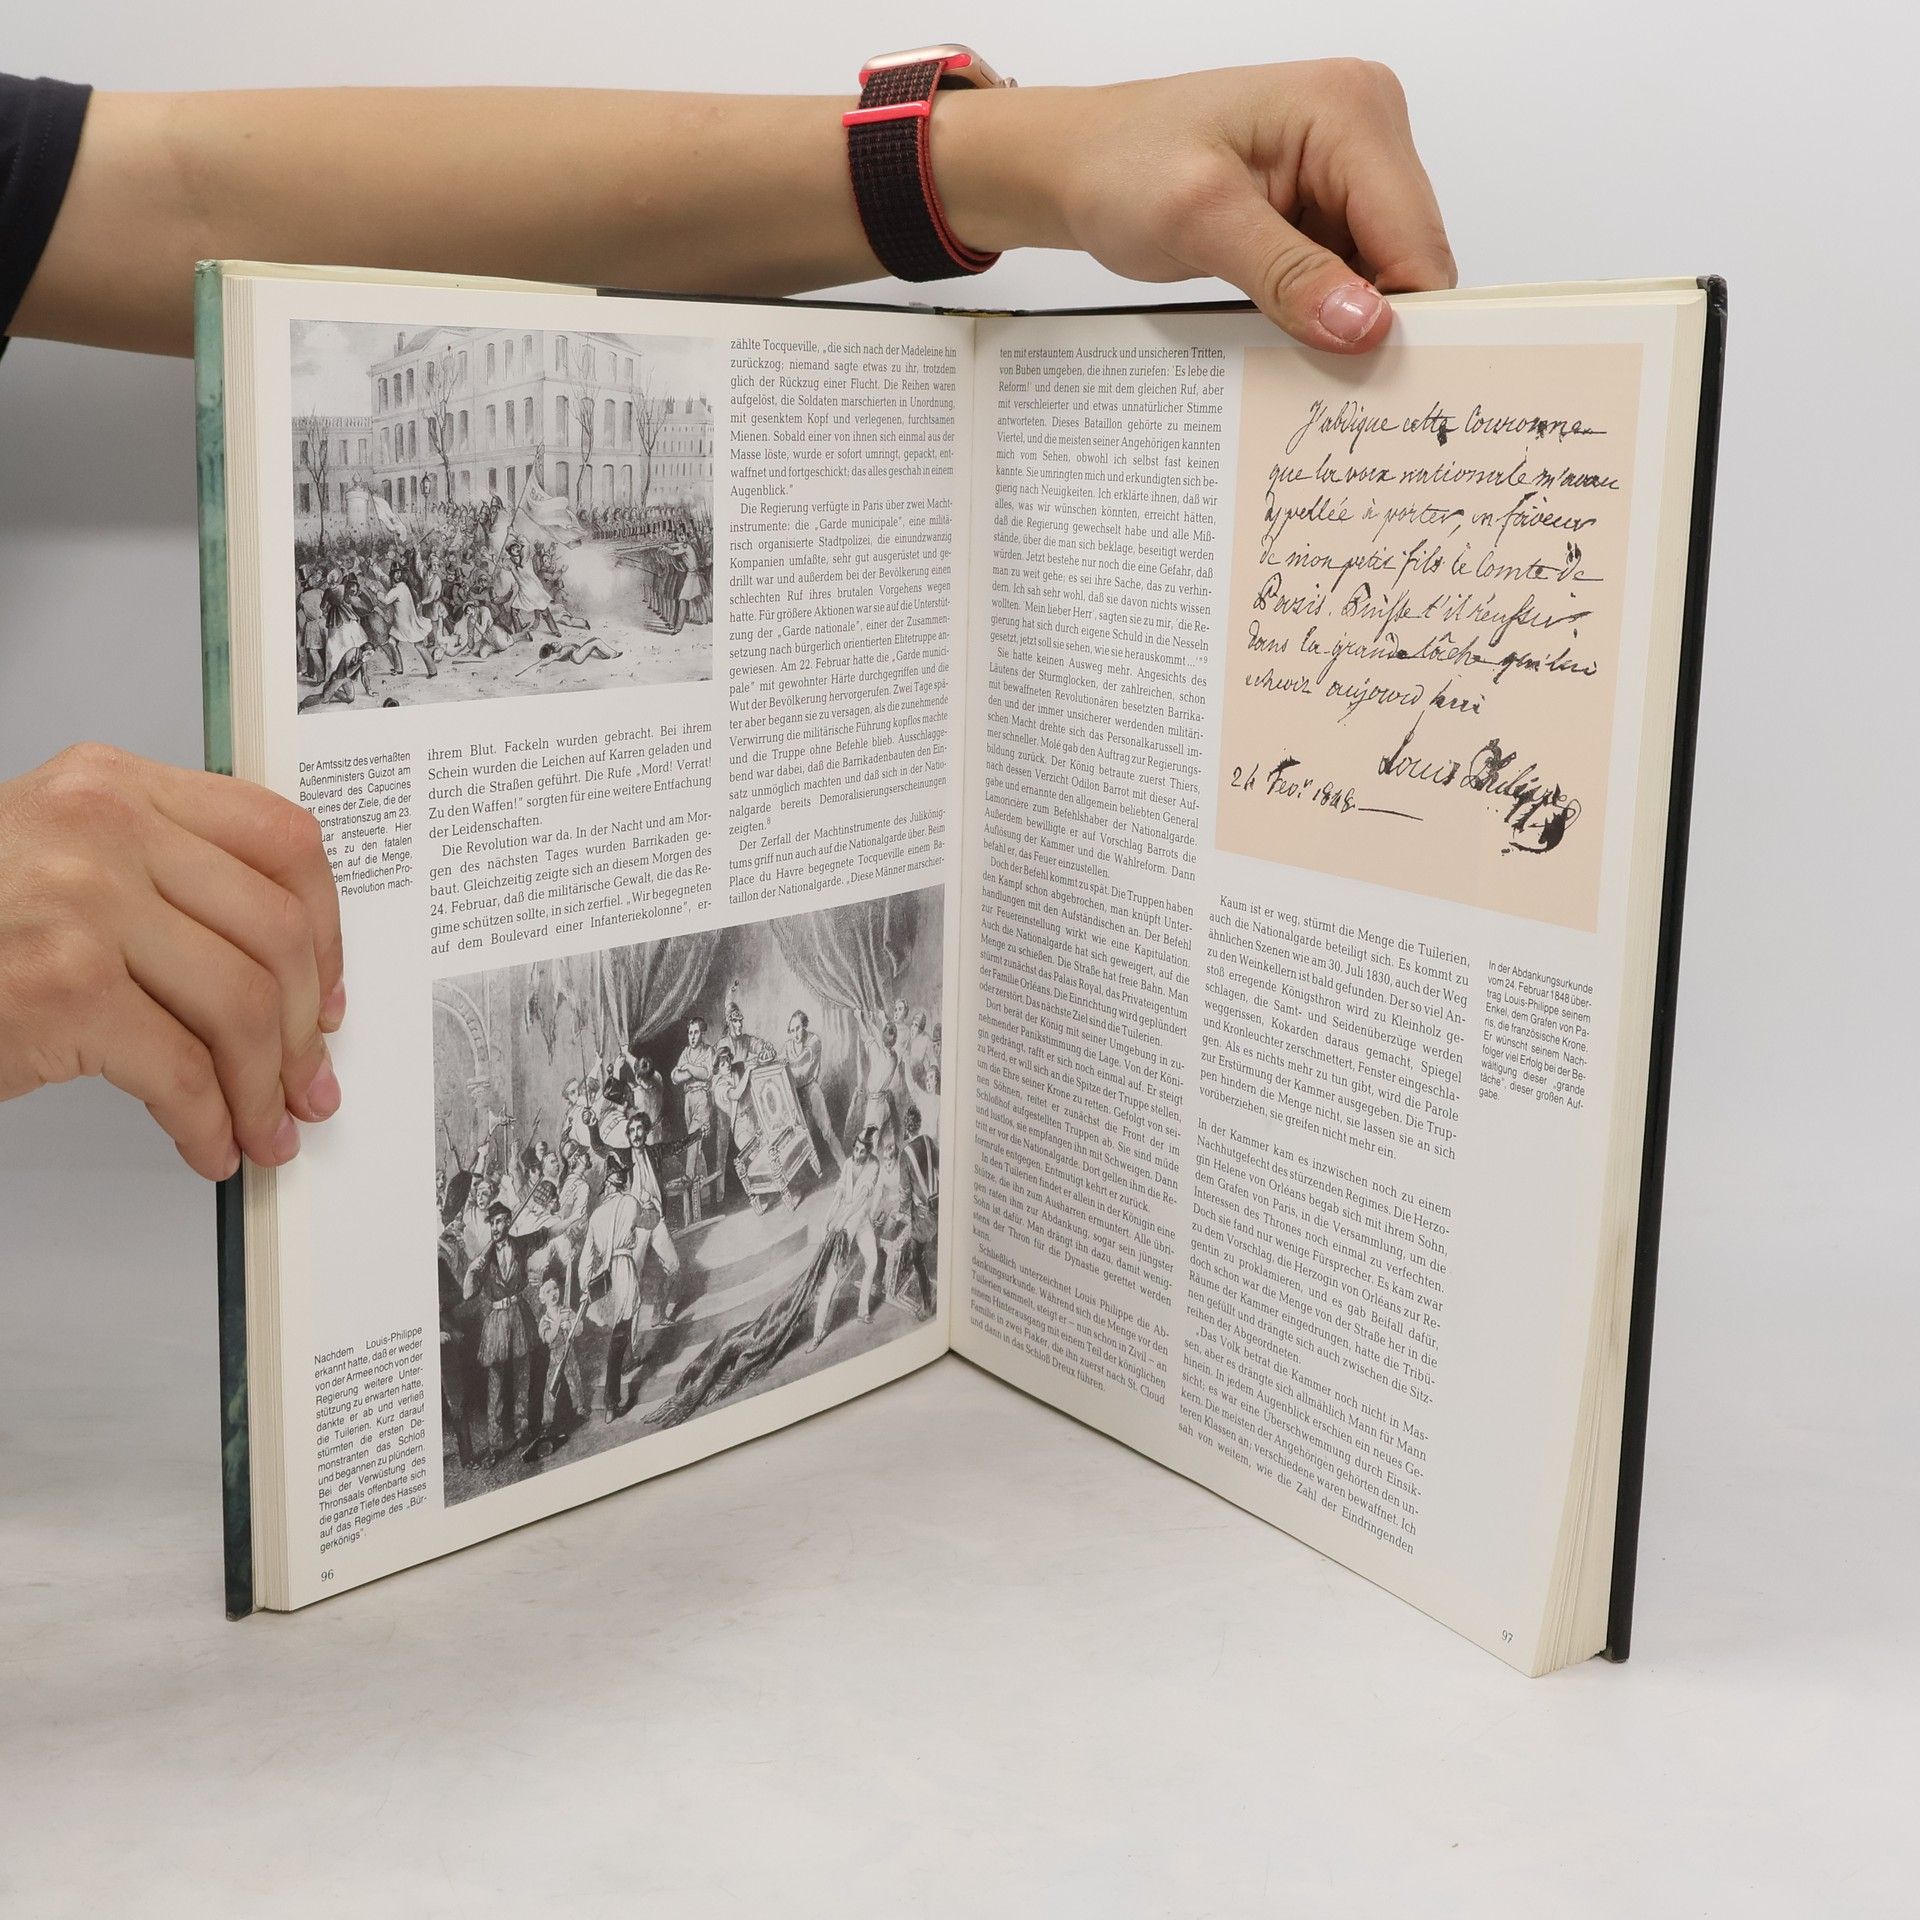 Der Amtssitz des verhaßten
Außenministers Guizot am
Boulevard des Capucines
eines der Ziele, die der
monstrationszug am 23.
ansteuerte. Hier
es zu den fatalen
auf die Menge,
dem friedlichen Pro-
Revolution mach-
ihrem Blut. Fackeln wurden gebracht. Bei ihrem
Schein wurden die Leichen auf Karren geladen und
durch die Straßen geführt. Die Rufe „Mord! Verrat!
Zu den Waffen!" sorgten für eine weitere Entfachung
der Leidenschaften.
Die Revolution war da. In der Nacht und am Mor-
gen des nächsten Tages wurden Barrikaden ge-
baut. Gleichzeitig zeigte sich an diesem Morgen des
24. Februar, daß die militärische Gewalt, die das Re-
gime schützen sollte, in sich zerfiel. „Wir begegneten
auf dem Boulevard einer Infanteriekolonne", er-
Nachdem Louis-Philippe
erkannt hatte, daß er weder
von der Armee noch von der
Regierung weitere Unter-
stützung zu erwarten hatte,
dankte er ab und verließ
die Tuilerien. Kurz darauf
stürmten die ersten De-
monstranten das Schloß
und begannen zu plündern.
Bei der Verwüstung des
Thronsaals offenbarte sich
die ganze Tiefe des Hasses
auf das Regime des „Bür-
gerkönigs".
96
zählte Tocqueville, „die sich nach der Madeleine hin
zurückzog; niemand sagte etwas zu ihr, trotzdem
glich der Rückzug einer Flucht. Die Reihen waren
aufgelöst, die Soldaten marschierten in Unordnung,
mit gesenktem Kopf und verlegenen, furchtsamen
Mienen. Sobald einer von ihnen sich einmal aus der
Masse löste, wurde er sofort umringt, gepackt, ent-
waffnet und fortgeschickt; das alles geschah in einem
Augenblick."
Die Regierung verfügte in Paris über zwei Macht-
instrumente: die „Garde municipale", eine militä-
risch organisierte Stadtpolizei, die einundzwanzig
Kompanien umfaßte, sehr gut ausgerüstet und ge-
drillt war und außerdem bei der Bevölkerung einen
schlechten Ruf ihres brutalen Vorgehens wegen
hatte. Für größere Aktionen war sie auf die Unterstüt-
zung der „Garde nationale", einer der Zusammen-
setzung nach bürgerlich orientierten Elitetruppe an-
gewiesen. Am 22. Februar hatte die „Garde munici-
pale" mit gewohnter Härte durchgegriffen und die
Wut der Bevölkerung hervorgerufen. Zwei Tage spä-
ter aber begann sie zu versagen, als die zunehmende
Verwirrung die militärische Führung kopflos machte
und die Truppe ohne Befehle blieb. Ausschlagge-
bend war dabei, daß die Barrikadenbauten den Ein-
satz unmöglich machten und daß sich in der Natio-
nalgarde bereits Demoralisierungserscheinungen
zeigten.⁸
Der Zerfall der Machtinstrumente des Julikönig-
tums griff nun auch auf die Nationalgarde über. Beim
Place du Havre begegnete Tocqueville einem Ba-
taillon der Nationalgarde. „Diese Männer marschier-
ten mit erstauntem Ausdruck und unsicheren Tritten,
von Buben umgeben, die ihnen zuriefen: 'Es lebe die
Reform!' und denen sie mit dem gleichen Ruf, aber
mit verschleierter und etwas unnatürlicher Stimme
antworteten. Dieses Bataillon gehörte zu meinem
Viertel, und die meisten seiner Angehörigen kannten
mich vom Sehen, obwohl ich selbst fast keinen
kannte. Sie umringten mich und erkundigten sich be-
gierig nach Neuigkeiten. Ich erklärte ihnen, daß wir
alles, was wir wünschen könnten, erreicht hätten,
daß die Regierung gewechselt habe und alle Miß-
stände, über die man sich beklage, beseitigt werden
würden. Jetzt bestehe nur noch die eine Gefahr, daß
man zu weit gehe; es sei ihre Sache, das zu verhin-
dern. Ich sah sehr wohl, daß sie davon nichts wissen
wollten. 'Mein lieber Herr', sagten sie zu mir, 'die Re-
gierung hat sich durch eigene Schuld in die Nesseln
gesetzt, jetzt soll sie sehen, wie sie herauskommt ...'"⁹
Sie hatte keinen Ausweg mehr. Angesichts des
Läutens der Sturmglocken, der zahlreichen, schon
mit bewaffneten Revolutionären besetzten Barrika-
den und der immer unsicherer werdenden militäri-
schen Macht drehte sich das Personalkarussell im-
mer schneller. Molé gab den Auftrag zur Regierungs-
bildung zurück. Der König betraute zuerst Thiers,
nach dessen Verzicht Odilon Barrot mit dieser Auf-
gabe und ernannte den allgemein beliebten General
Lamoricière zum Befehlshaber der Nationalgarde.
Außerdem bewilligte er auf Vorschlag Barrots die
Auflösung der Kammer und die Wahlreform. Dann
befahl er, das Feuer einzustellen.
Doch der Befehl kommt zu spät. Die Truppen haben
den Kampf schon abgebrochen, man knüpft Unter-
handlungen mit den Aufständischen an. Der Befehl
zur Feuereinstellung wirkt wie eine Kapitulation.
Auch die Nationalgarde hat sich geweigert, auf die
Menge zu schießen. Die Straße hat freie Bahn. Man
stürmt zunächst das Palais Royal, das Privateigentum
der Familie Orléans. Die Einrichtung wird geplündert
oder zerstört. Das nächste Ziel sind die Tuilerien.
Dort berät der König mit seiner Umgebung in zu-
nehmender Panikstimmung die Lage. Von der Köni-
gin gedrängt, rafft er sich noch einmal auf. Er steigt
zu Pferd, er will sich an die Spitze der Truppe stellen,
um die Ehre seiner Krone zu retten. Gefolgt von sei-
nen Söhnen, reitet er zunächst die Front der im
Schloßhof aufgestellten Truppen ab. Sie sind müde
und lustlos, sie empfangen ihn mit Schweigen. Dann
tritt er vor die Nationalgarde. Dort gellen ihm die Re-
formrufe entgegen. Entmutigt kehrt er zurück.
In den Tuilerien findet er allein in der Königin eine
Stütze, die ihn zum Ausharren ermuntert. Alle übri-
gen raten ihm zur Abdankung, sogar sein jüngster
Sohn ist dafür. Man drängt ihn dazu, damit wenig-
stens der Thron für die Dynastie gerettet werden
kann.
Schließlich unterzeichnet Louis Philippe die Ab-
dankungsurkunde. Während sich die Menge vor den
Tuilerien sammelt, steigt er – nun schon in Zivil – an
einem Hinterausgang mit einem Teil der königlichen
Familie in zwei Fiaker, die ihn zuerst nach St. Cloud
und dann in das Schloß Dreux führen.
J'abdique cette Couronne
que la voix nationale m'avait
appellée à porter, en faveur
de mon petit fils le Comte de
Paris. Puisse t'il réussir
dans la grande tâche qui lui
echoit aujourd'hui
Louis Philippe
24 Fevr. 1848.
Kaum ist er weg, stürmt die Menge die Tuilerien,
auch die Nationalgarde beteiligt sich. Es kommt zu
ähnlichen Szenen wie am 30. Juli 1830, auch der Weg
zu den Weinkellern ist bald gefunden. Der so viel An-
stoß erregende Königsthron wird zu Kleinholz ge-
schlagen, die Samt- und Seidenüberzüge werden
weggerissen, Kokarden daraus gemacht, Spiegel
und Kronleuchter zerschmettert, Fenster eingeschla-
gen. Als es nichts mehr zu tun gibt, wird die Parole
zur Erstürmung der Kammer ausgegeben. Die Trup-
pen hindern die Menge nicht, sie lassen sie an sich
vorüberziehen, sie greifen nicht mehr ein.
In der Kammer kam es inzwischen noch zu einem
Nachhutgefecht des stürzenden Regimes. Die Herzo-
gin Helene von Orléans begab sich mit ihrem Sohn,
dem Grafen von Paris, in die Versammlung, um die
Interessen des Thrones noch einmal zu verfechten.
Doch sie fand nur wenige Fürsprecher. Es kam zwar
zu dem Vorschlag, die Herzogin von Orléans zur Re-
gentin zu proklamieren, und es gab Beifall dafür,
doch schon war die Menge von der Straße her in die
Räume der Kammer eingedrungen, hatte die Tribü-
nen gefüllt und drängte sich auch zwischen die Sitz-
reihen der Abgeordneten.
„Das Volk betrat die Kammer noch nicht in Mas-
sen, aber es drängte sich allmählich Mann für Mann
hinein. In jedem Augenblick erschien ein neues Ge-
sicht; es war eine Überschwemmung durch Einsik-
kern. Die meisten der Angehörigen gehörten den un-
teren Klassen an; verschiedene waren bewaffnet. Ich
sah von weitem, wie die Zahl der Eindringenden
In der Abdankungsurkunde
vom 24. Februar 1848 über-
trag Louis-Philippe seinem
Enkel, dem Grafen von Pa-
ris, die französische Krone.
Er wünscht seinem Nach-
folger viel Erfolg bei der Be-
wältigung dieser „grande
tâche" dieser großen Auf-
gabe.
97